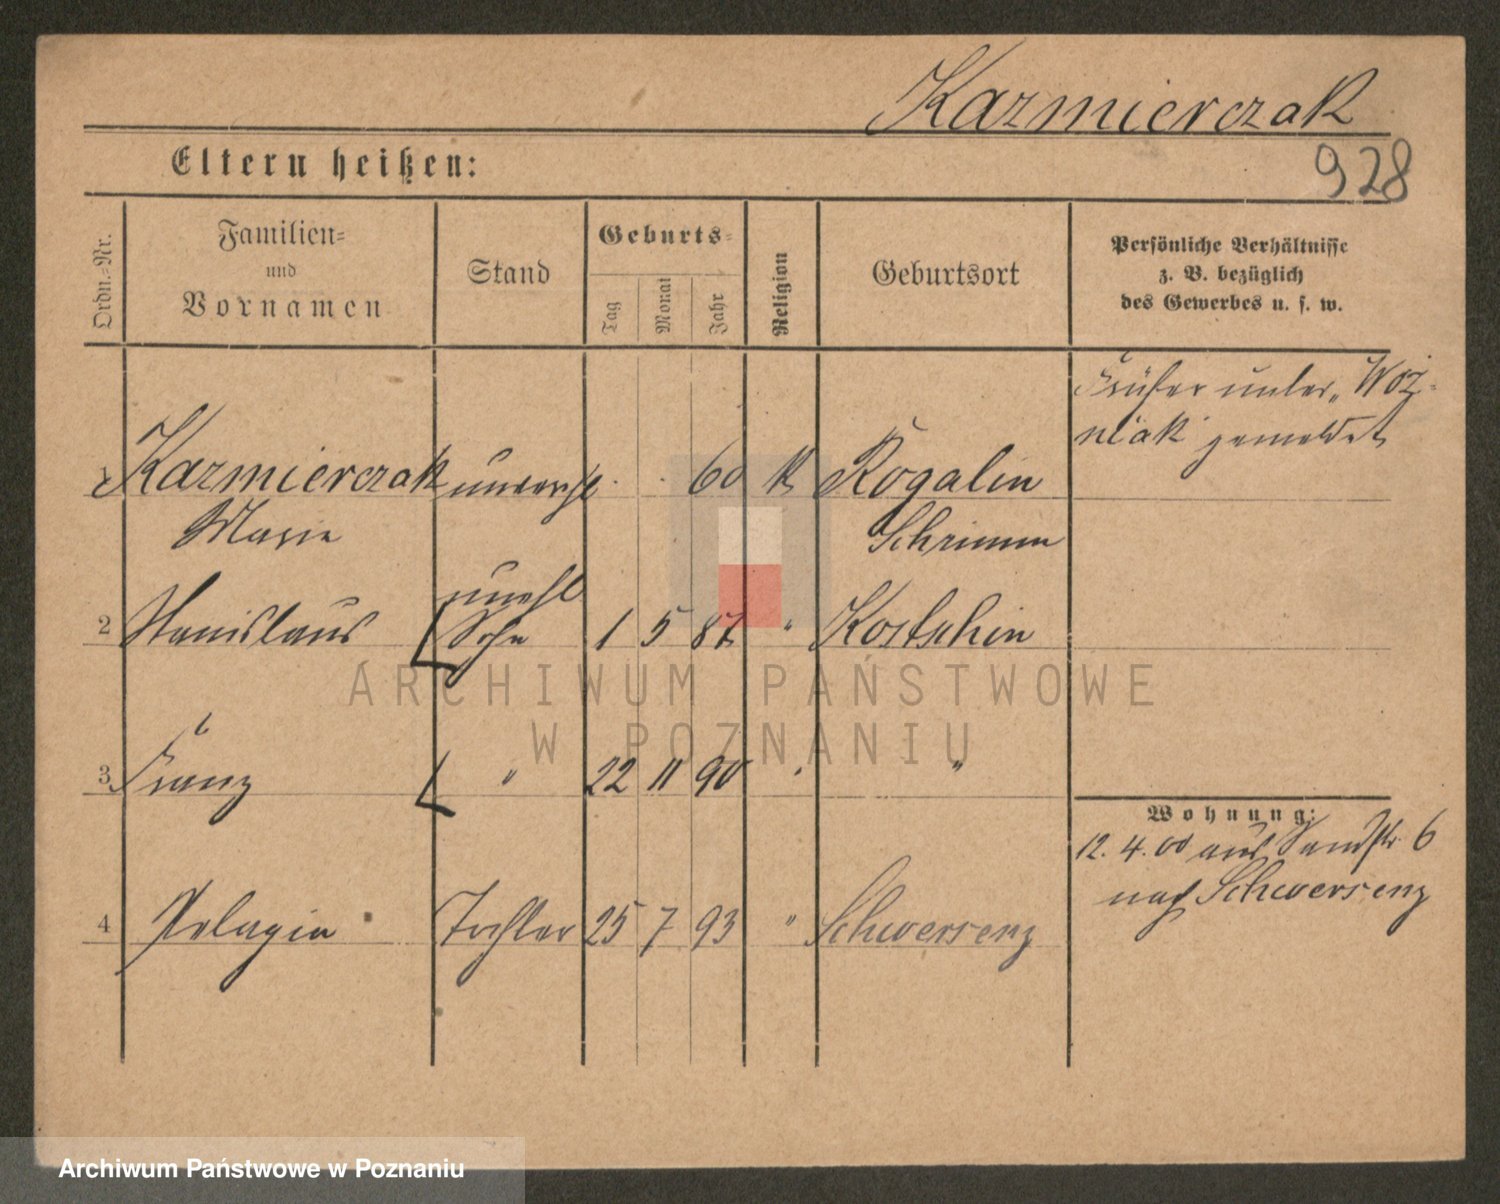 Kazmierczak
928
Eltern heißen:
Ordn.-Nr.
Familien-
und
Vornamen
Stand
Geburts-
Tag
Monat
Jahr
Religion
Geburtsort
Persönliche Verhältnisse
z. B. bezüglich
des Gewerbes u. s. w.
Früher unter „Woz-
niak" gemeldet
1 Kazmierczak unverehl . . 60 k Rogalin
Marie Schrimm
unehl
2 Stanislaus Sohn 1 5 87 " Kostschin
3 Franz " 22 11 90 " "
Wohnung:
12. 4. 00 aus Sandstr. 6
nach Schwersenz
4 Pelagia Tochter 25 7 93 " Schwersenz
ARCHIWUM PAŃSTWOWE
W POZNANIU
Archiwum Państwowe w Poznaniu